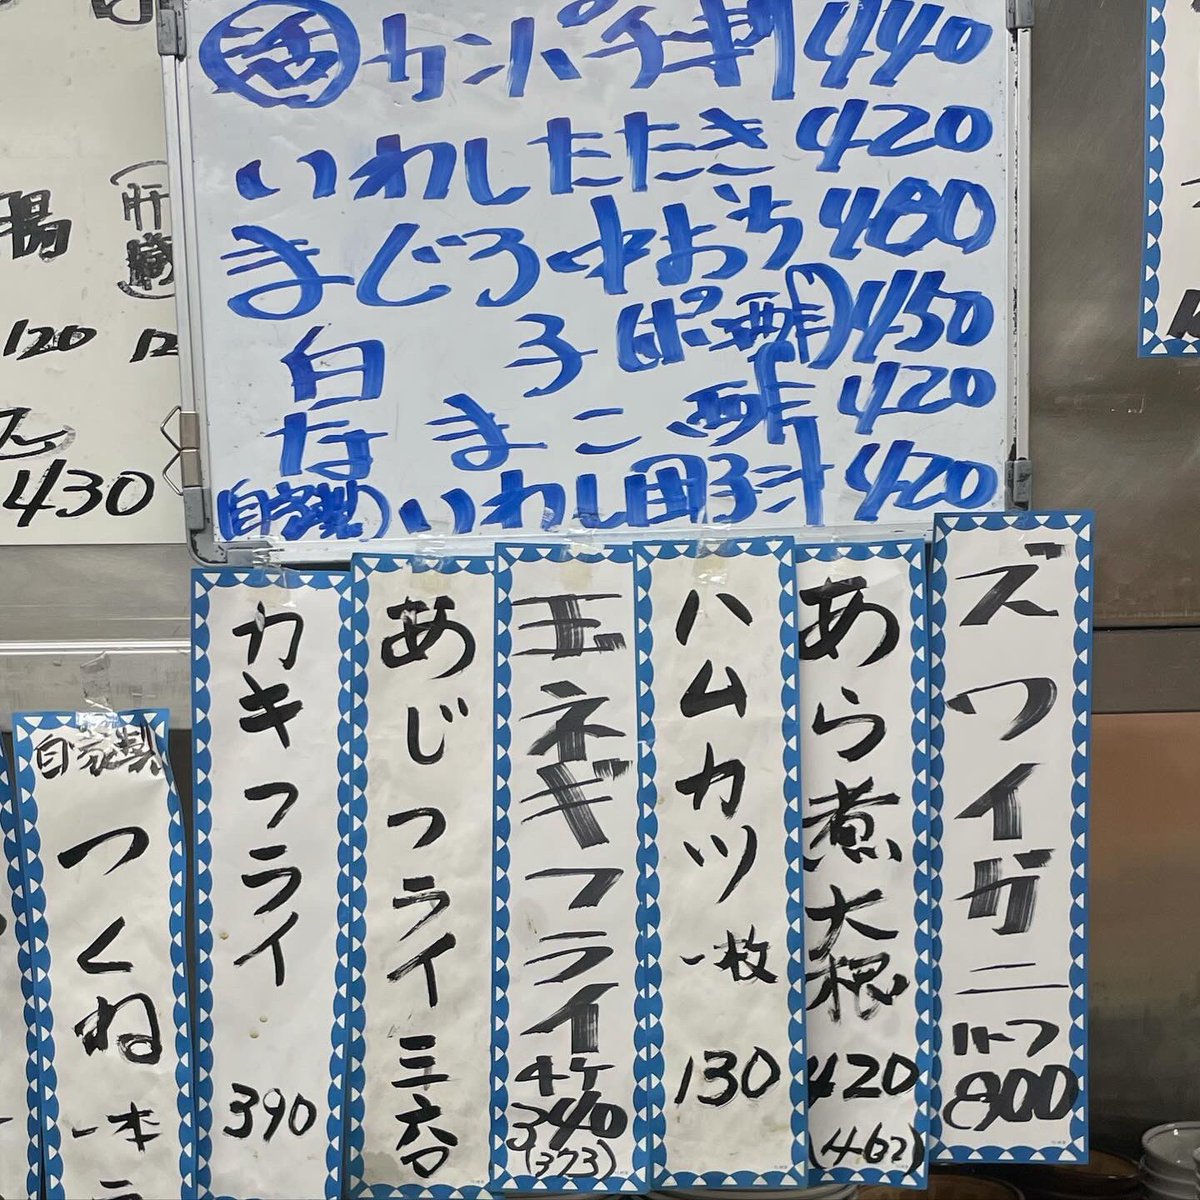 活 カンパチ刺 440
いわしたたき 420
まぐろ中おち 480
白子(ポン酢) 450
なまこ酢 420
(自家製)いわし団子汁 420
肝
120
430
ズワイガニ
ハーフ
800
あら煮大根
420
(462)
ハムカツ
一枚
130
玉ネギフライ
4ケ
340
(373)
あじフライ
カキフライ
390
自家製
つくね
一本